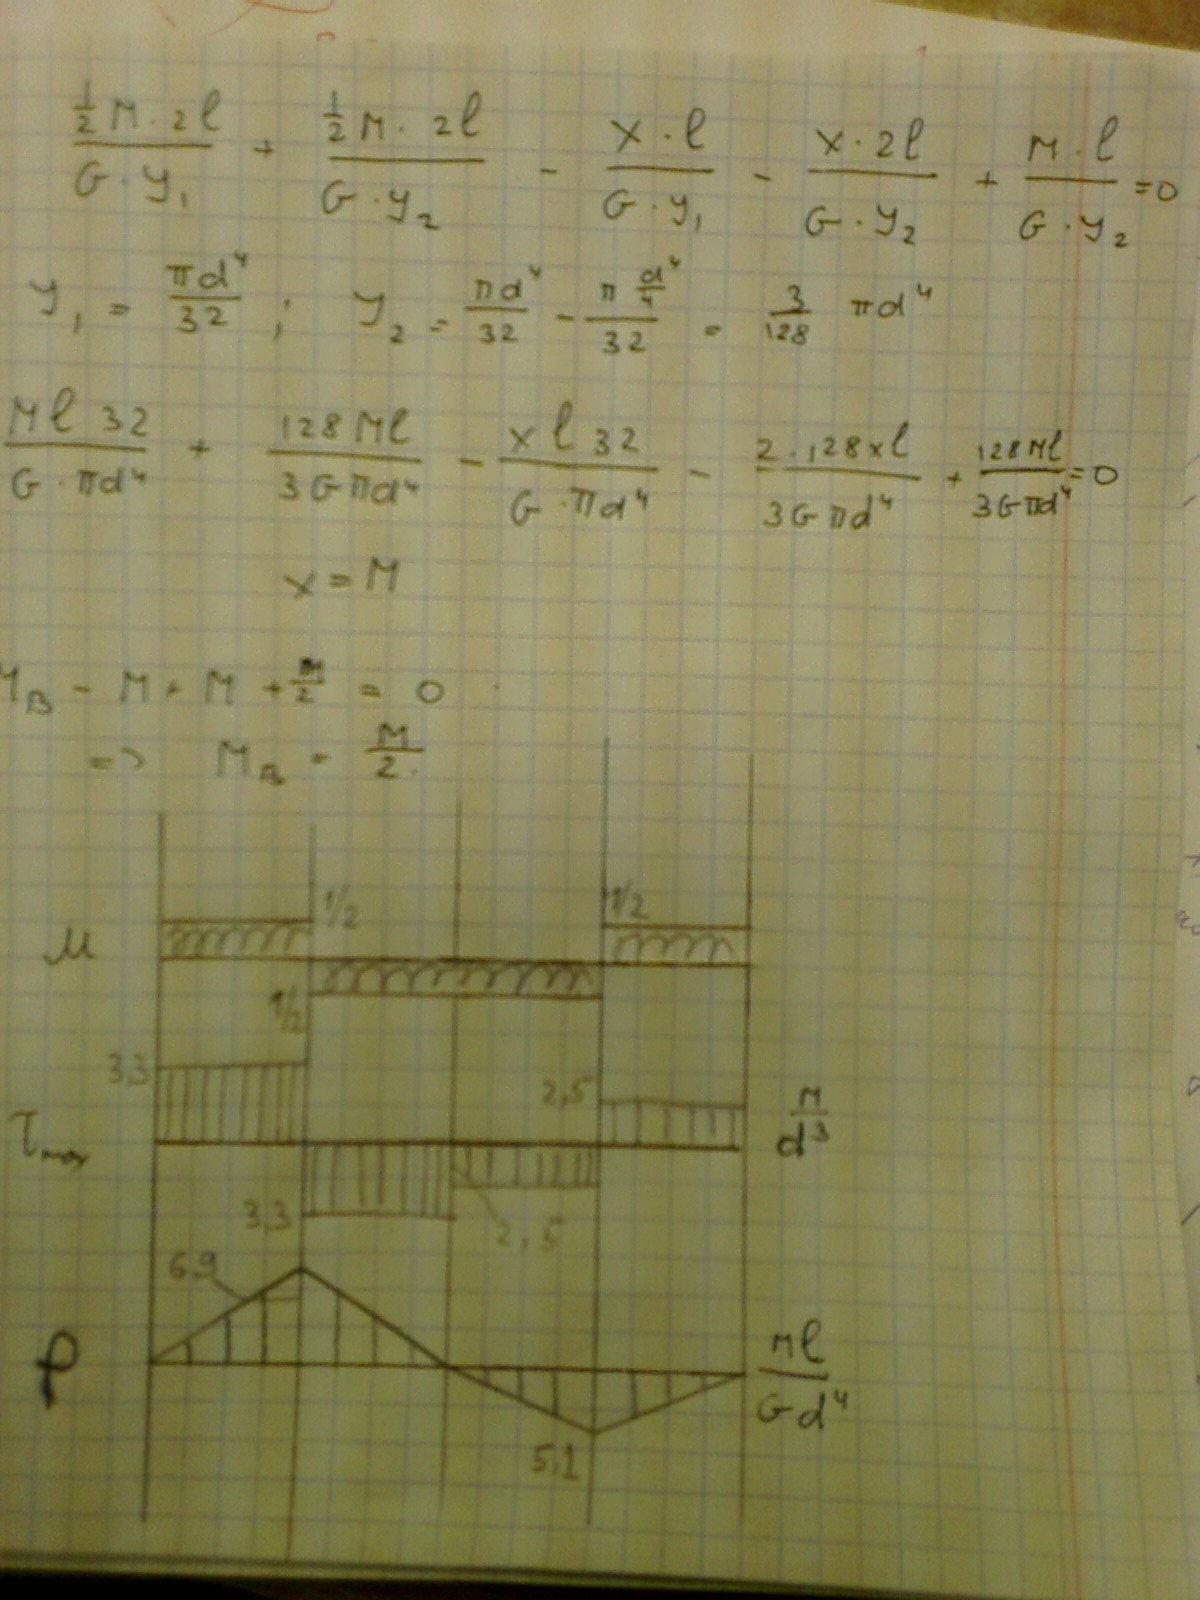 ½ M · 2l / G · Y₁ + ½ M · 2l / G · Y₂ - x · l / G · Y₁ - x · 2l / G · Y₂ + M · l / G · Y₂ = 0
Y₁ = πd⁴/32 ; Y₂ = πd⁴/32 - π d⁴/4 / 32 = 3/128 πd⁴
Ml 32 / G · πd⁴ + 128 Ml / 3Gπd⁴ - x l 32 / G · πd⁴ - 2 · 128 x l / 3Gπd⁴ + 128 Ml / 3Gπd⁴ = 0
x = M
M_B - M + M + M/2 = 0
=> M_B = M/2.
1/2 1/2
M
1/2
3,3 2,5
τ_max M/d³
3,3 2,5
6,9
φ Ml/Gd⁴
5,1